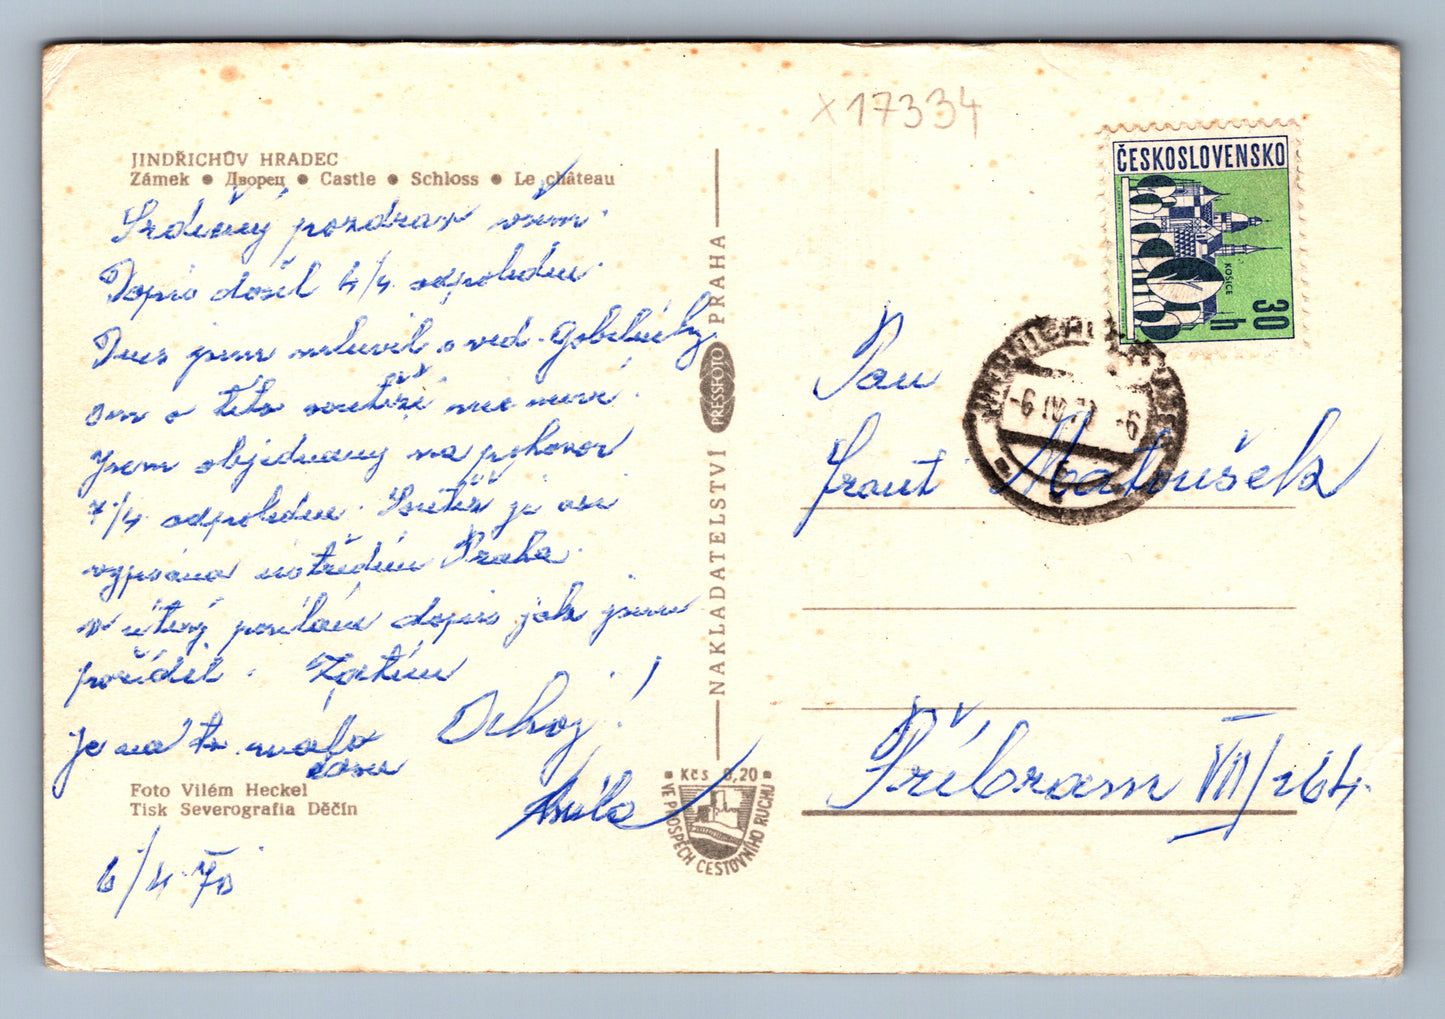 x17334
JINDŘICHŮV HRADEC
Zámek • Дворец • Castle • Schloss • Le château
Srdečný pozdrav všem.
Dopis došel 4/4 odpoledne.
Dnes jsem mluvil s ved. Gobelínky
on o této soutěži nic neví.
Jsem objednaný na pohovor
7/4 odpoledne. Soutěž je asi
vypsána ústředím Praha.
v úterý posílám dopis jak jsem
pořídil. Zatím
Je na to málo
času
Ahoj!
Míla
6/4. 70
Foto Vilém Heckel
Tisk Severografia Děčín
NAKLADATELSTVÍ PRESSFOTO PRAHA
Kčs 0,20
VE PROSPĚCH CESTOVNÍHO RUCHU
ČESKOSLOVENSKO
KOŠICE
30 h
-6. IV. 70 -6
Pan
Frant. Matoušek
Příbram VII/264.